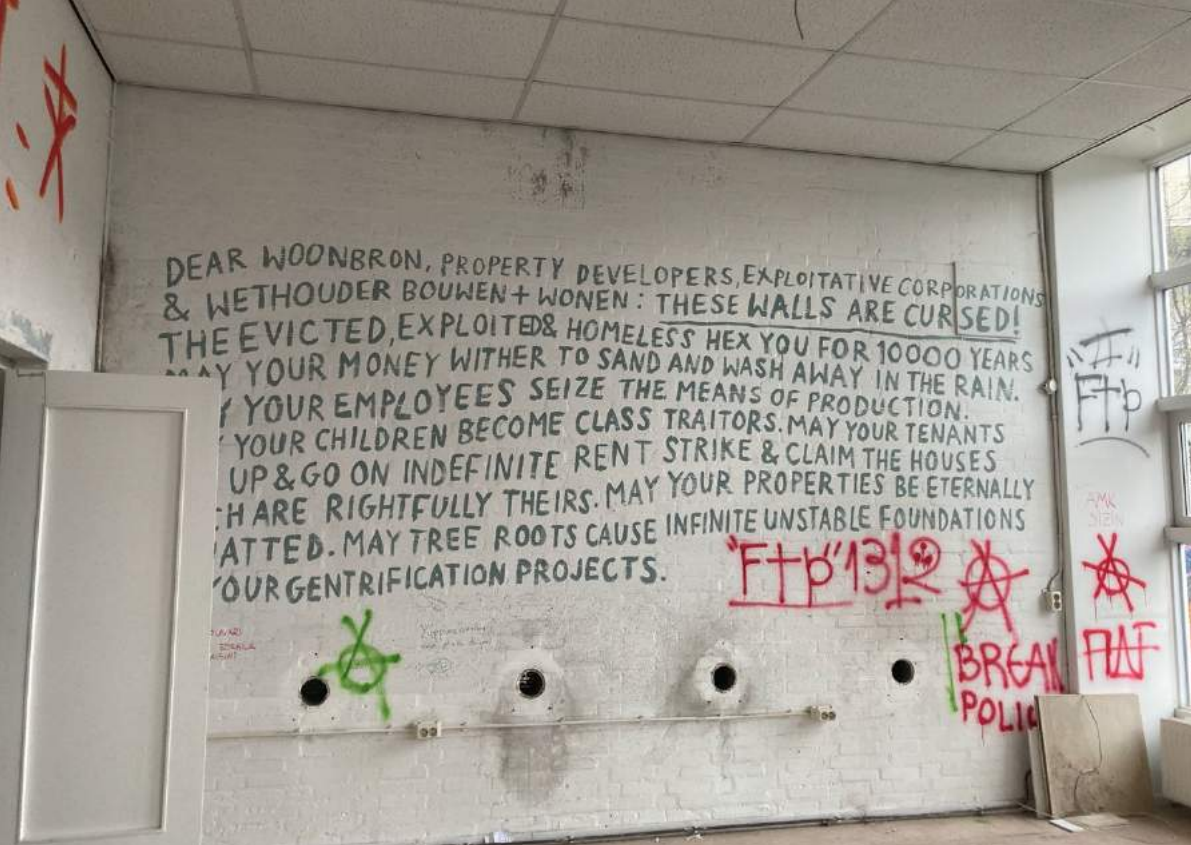 DEAR WOONBRON, PROPERTY DEVELOPERS, EXPLOITATIVE CORPORATIONS
& WETHOUDER BOUWEN + WONEN : THESE WALLS ARE CURSED!
THE EVICTED, EXPLOITED & HOMELESS HEX YOU FOR 10000 YEARS
MAY YOUR MONEY WITHER TO SAND AND WASH AWAY IN THE RAIN.
YOUR EMPLOYEES SEIZE THE MEANS OF PRODUCTION.
YOUR CHILDREN BECOME CLASS TRAITORS. MAY YOUR TENANTS
UP & GO ON INDEFINITE RENT STRIKE & CLAIM THE HOUSES
CH ARE RIGHTFULLY THEIRS. MAY YOUR PROPERTIES BE ETERNALLY
ATTED. MAY TREE ROOTS CAUSE INFINITE UNSTABLE FOUNDATIONS
YOUR GENTRIFICATION PROJECTS.
"Ftp" 1312
A
BREAK
POLIC
A
Ftp
AMK
STEIN
A